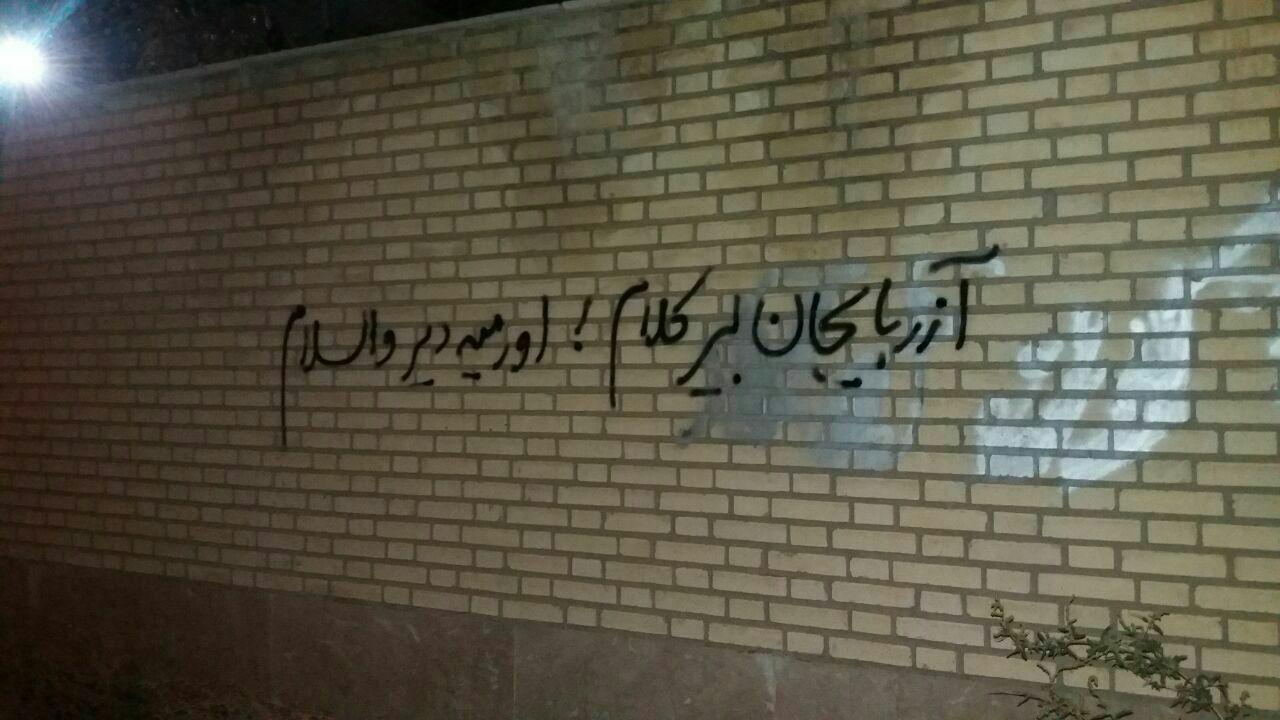 آذربایجان بیر کلام ! اورمیه دیر والسلام